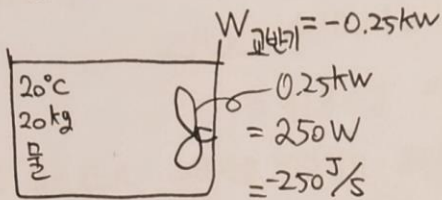 W교반기 = -0.25kW
20°C
20kg
물
0.25kW
= 250W
= -250 J/s